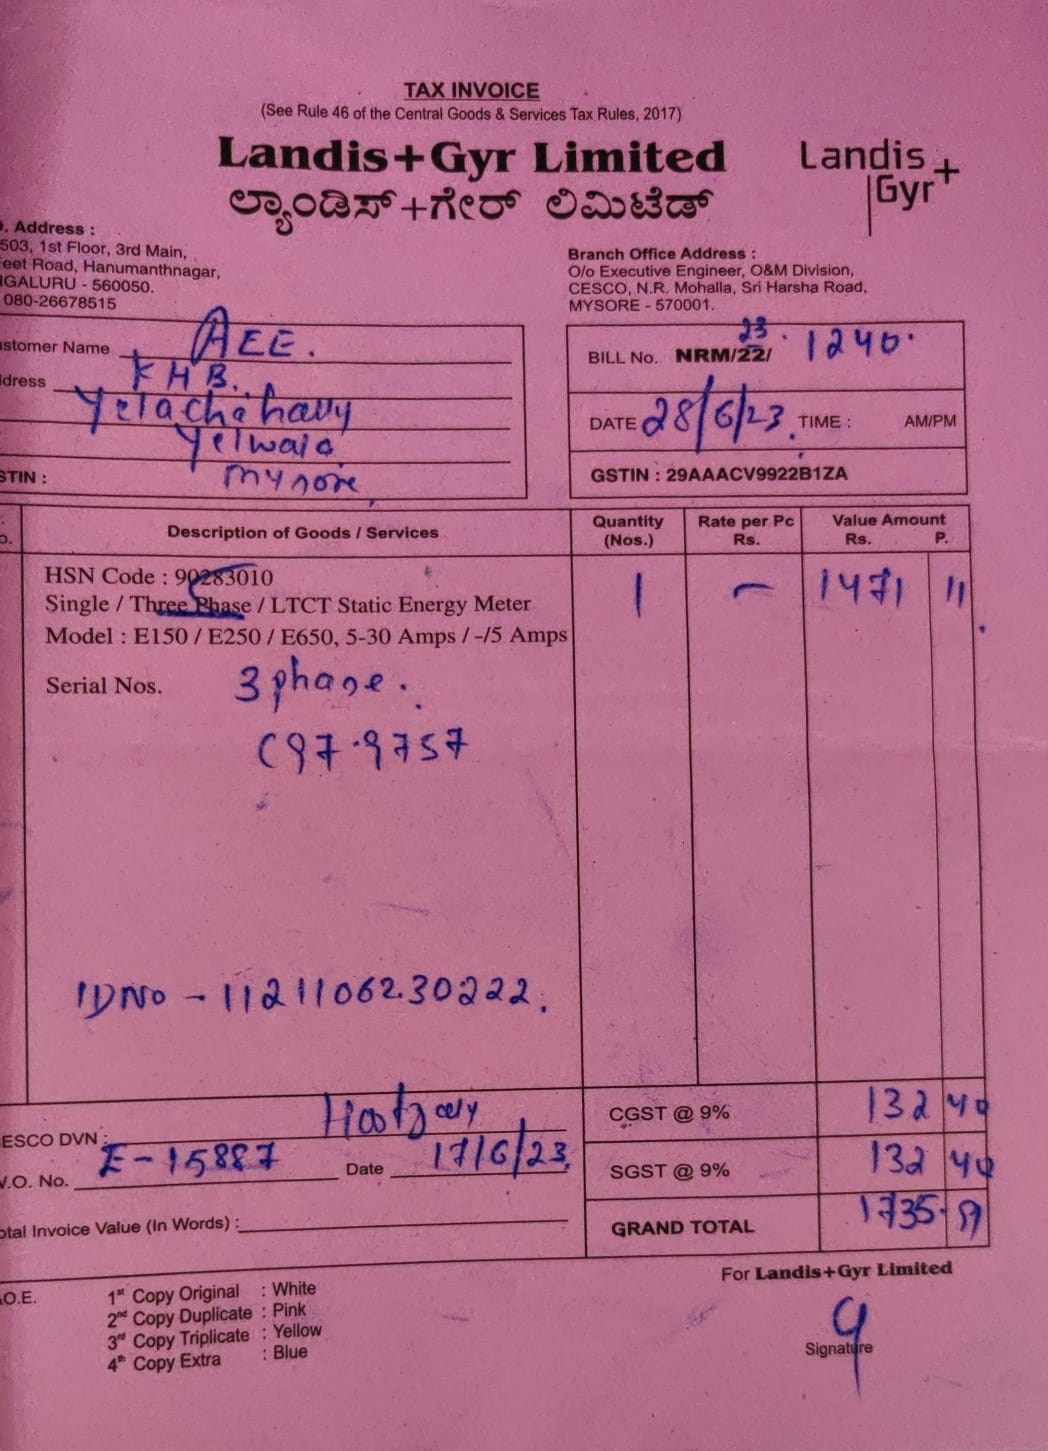 TAX INVOICE
(See Rule 46 of the Central Goods & Services Tax Rules, 2017)
Landis+Gyr Limited
ಲ್ಯಾಂಡಿಸ್+ಗೇರ್ ಲಿಮಿಟೆಡ್
Landis
Gyr+
. Address :
503, 1st Floor, 3rd Main,
eet Road, Hanumanthnagar,
GALURU - 560050.
080-26678515
Branch Office Address :
O/o Executive Engineer, O&M Division,
CESCO, N.R. Mohalla, Sri Harsha Road,
MYSORE - 570001.
stomer Name AEE.
dress KHB.
Yelwala
mysore
STIN :
BILL No. NRM/22/ 23. 1240.
DATE 28/6/23 TIME : AM/PM
GSTIN : 29AAACV9922B1ZA
Description of Goods / Services
Quantity (Nos.)
Rate per Pc Rs.
Value Amount Rs. P.
HSN Code : 90283010
Single / Three Phase / LTCT Static Energy Meter
1 - 1471 11
Model : E150 / E250 / E650, 5-30 Amps / -/5 Amps
Serial Nos. 3 phase.
C97.9757
IDNo - 11211062.30222.
ESCO DVN :
CGST @ 9% 132 40
V.O. No. E-15887 Date 17/6/23
SGST @ 9% 132 40
otal Invoice Value (In Words) :
GRAND TOTAL 1735.
.O.E.
1st Copy Original : White
2nd Copy Duplicate : Pink
3rd Copy Triplicate : Yellow
4th Copy Extra : Blue
For Landis+Gyr Limited
Signature